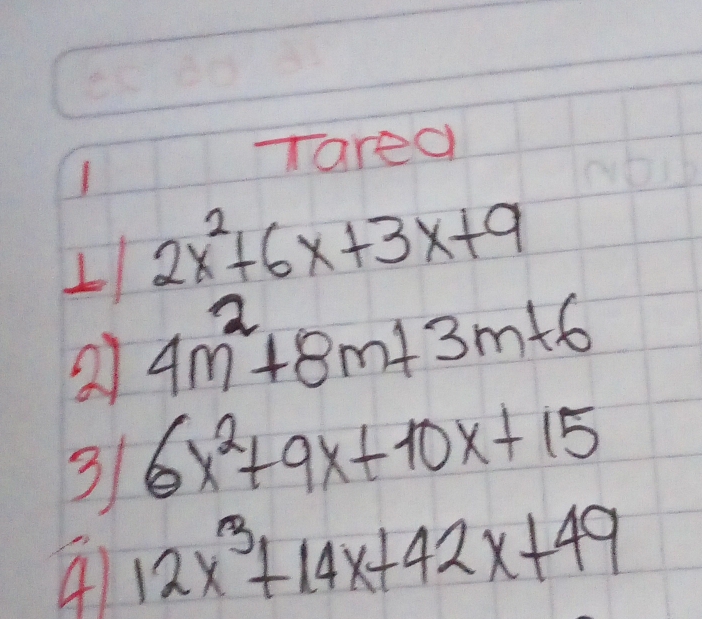 1 Tarea
1) 2x²+6x+3x+9
2) 4m²+8m+3m+6
3) 6x²+9x+10x+15
4) 12x³+14x+42x+49